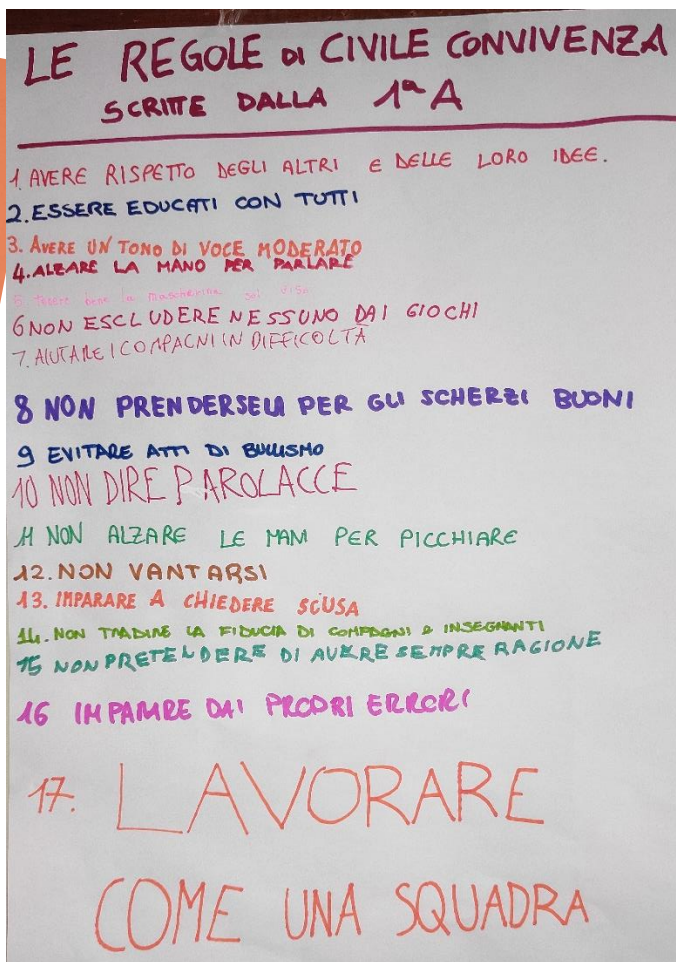 LE REGOLE DI CIVILE CONVIVENZA
SCRITTE DALLA 1ª A
1. AVERE RISPETTO DEGLI ALTRI E DELLE LORO IDEE.
2. ESSERE EDUCATI CON TUTTI
3. AVERE UN TONO DI VOCE MODERATO
4. ALZARE LA MANO PER PARLARE
5 tenere bene la mascherina sul viso
6 NON ESCLUDERE NESSUNO DAI GIOCHI
7. AIUTARE I COMPAGNI IN DIFFICOLTÀ
8 NON PRENDERSELA PER GLI SCHERZI BUONI
9 EVITARE ATTI DI BULLISMO
10 NON DIRE PAROLACCE
11 NON ALZARE LE MANI PER PICCHIARE
12. NON VANTARSI
13. IMPARARE A CHIEDERE SCUSA
14. NON TRADIRE LA FIDUCIA DI COMPAGNI e INSEGNANTI
15 NON PRETENDERE DI AVERE SEMPRE RAGIONE
16 IMPARARE DAI PROPRI ERRORI
17. LAVORARE
COME UNA SQUADRA